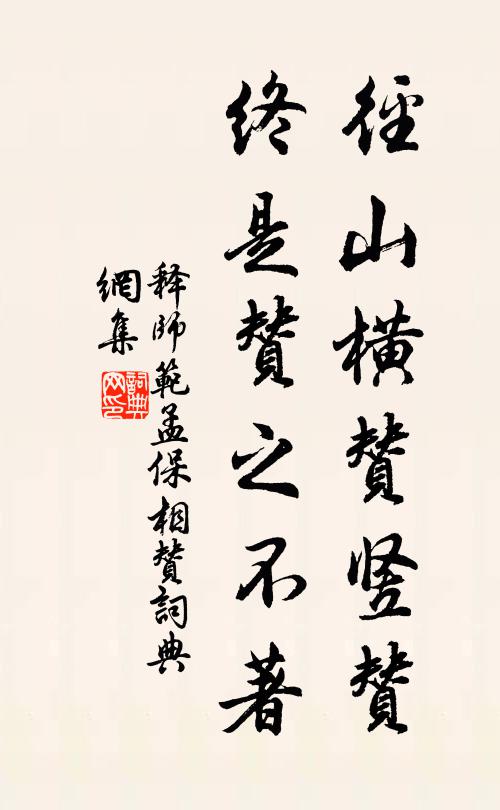 徑山橫贊竪贊
終是贊之不著
释師範孟保相贊詞典
網集
詞典
网印